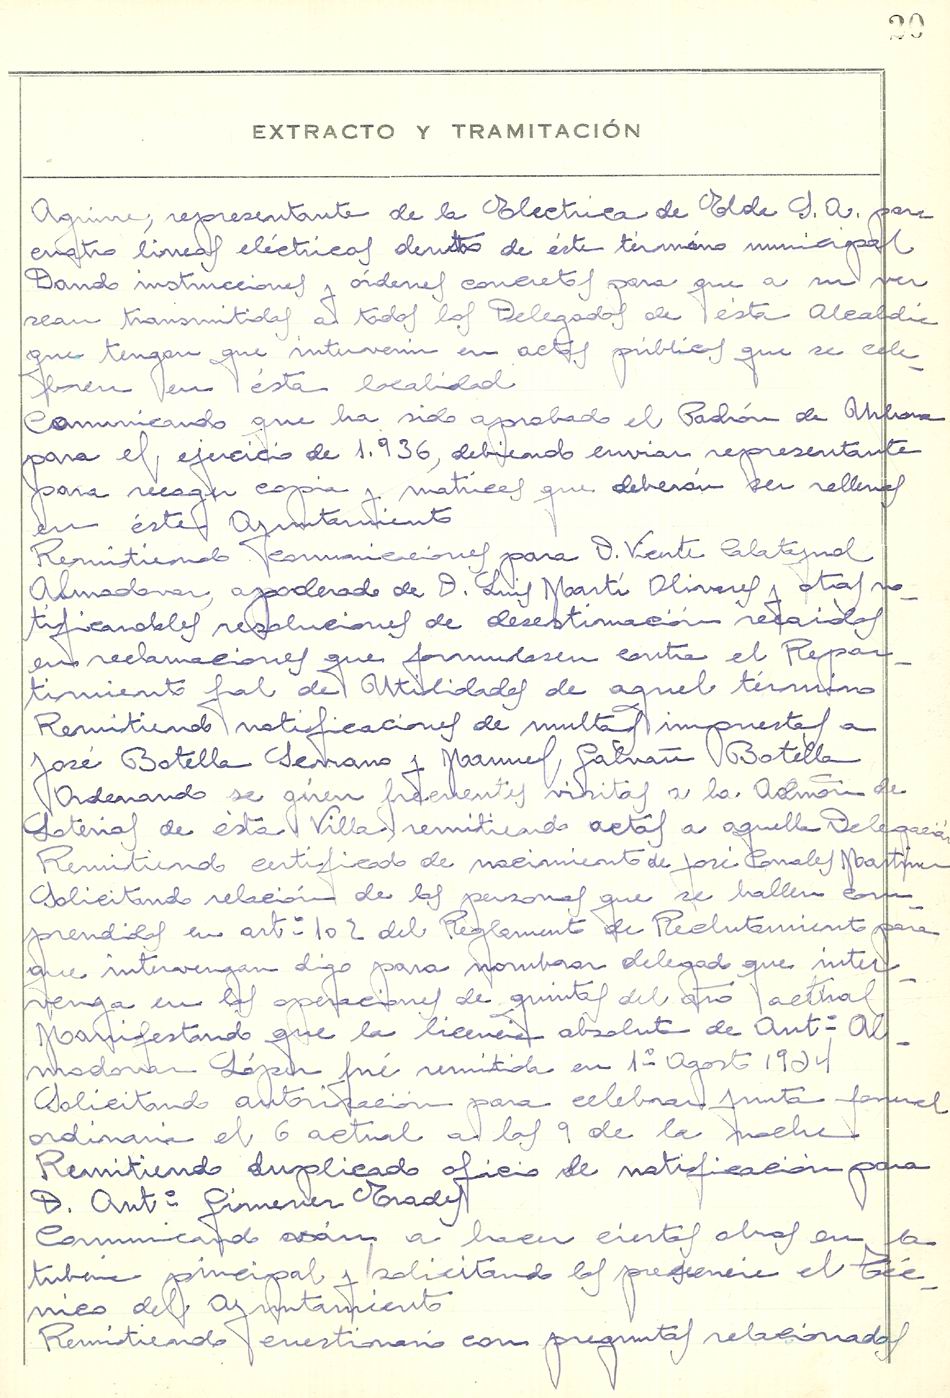 20
EXTRACTO Y TRAMITACIÓN
Aguirre; representante de la Electrica de Elda S. A. para
cuatro lineas eléctricas dentro de éste término municipal
Dando instrucciones y órdenes concretas para que a su vez
sean transmitidas a todos los Delegados de ésta Alcaldía
que tengan que intervenir en actos públicos que se cele-
bren en ésta localidad
Comunicando que ha sido aprobado el Padrón de Urbana
para el ejercicio de 1.936, debiendo enviar representante
para recoger copia y matrices que deberán ser rellenas
en éste Ayuntamiento
Remitiendo comunicaciones para D. Vicente Calatayud
Almodovar, apoderado de D. Luis Martí Olivares y otras no-
tificandoles resoluciones de desestimación recaidas
en reclamaciones que formulasen contra el Repar-
timiento gral de Utilidades de aquel término
Remitiendo notificaciones de multas impuestas a
José Botella Serrano y Manuel Galvañ Botella
Ordenando se giren frecuentes visitas a la Admón de
Loterias de ésta Villa, remitiendo actas a aquella Delegación
Remitiendo certificado de nacimiento de José Martinez
Solicitando relación de las personas que se hallen com-
prendidas en artº 102 del Reglamento de Reclutamiento para
que intervengan digo para nombrar delegado que inter-
venga en las operaciones de quintas del año actual
Manifestando que la licencia absoluta de Antº Al-
modovar López fué remitida en 1º Agosto 1924
Solicitando autorización para celebrar junta general
ordinaria el 6 actual a las 9 de la noche
Remitiendo duplicado oficio de notificación para
D. Antº Gimenez Erades
Comunicando a hacer ciertas obras en la
tuberia principal y solicitando las presencie el Téc-
nico del Ayuntamiento
Remitiendo cuestionario con preguntas relacionadas